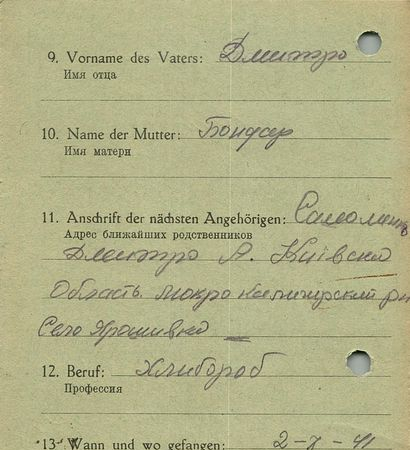 9. Vorname des Vaters: Дмитро
Имя отца
10. Name der Mutter: Бондар
Имя матери
11. Anschrift der nächsten Angehörigen:
Адрес ближайших родственников
Дмитро А. Київска
Область мокро
Село
12. Beruf: Хлибороб
Профессия
13. Wann und wo gefangen: 2-X-41